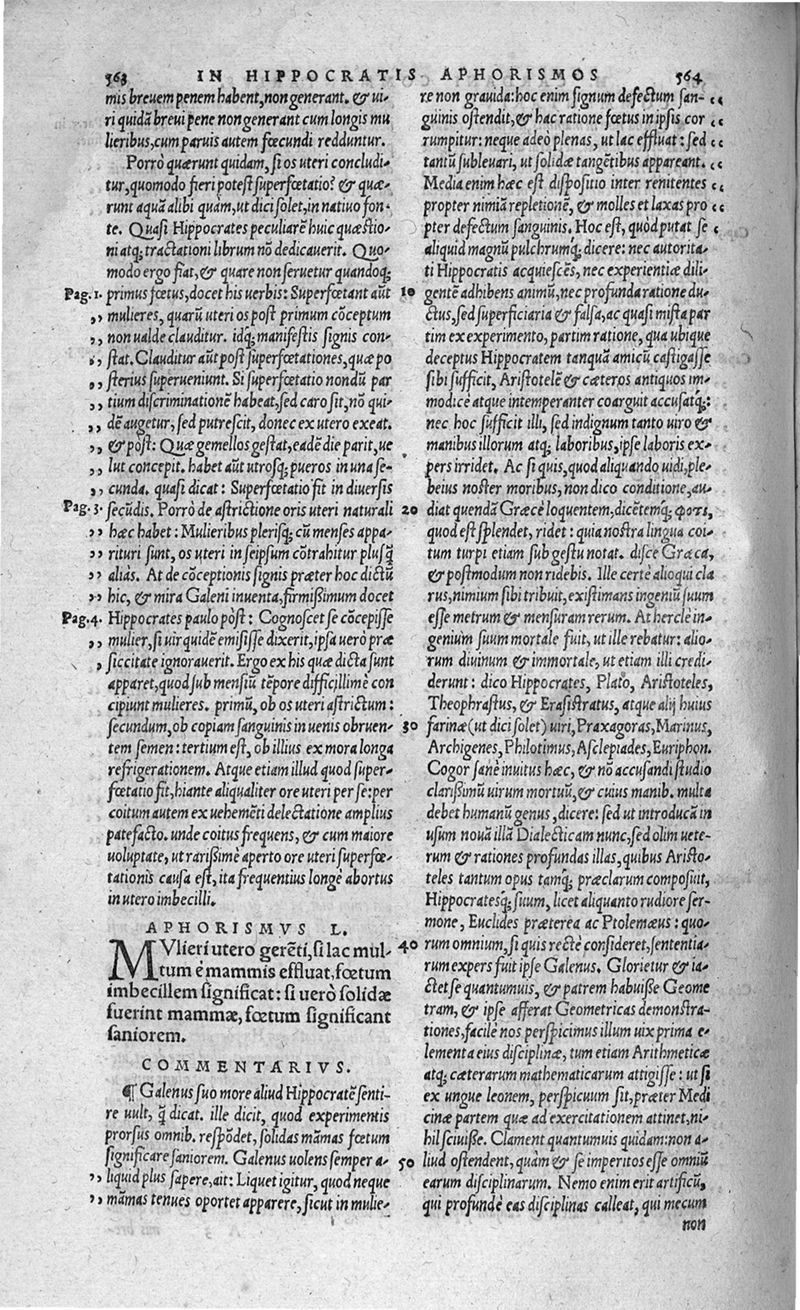 563 IN HIPPOCRATIS APHORISMOS 564
mis breuem penem habent, non generant. & ui-
ri quidā breui pene non generant cum longis mu
lieribus, cum paruis autem fœcundi redduntur.
Porrò quærunt quidam, si os uteri concludi-
tur, quomodo fieri potest superfœtatio? & quæ-
runt aquā alibi quàm, ut dici solet, in natiuo fon-
te. Quasi Hippocrates peculiarē huic quæstio-
ni atq; tractationi librum nō dedicauerit. Quo-
modo ergo fiat, & quare non seruetur quandoq;
Pag. 1. primus fœtus, docet his uerbis: Superfœtant aūt
„ mulieres, quarū uteri os post primum cōceptum
„ non ualde clauditur. idq; manifestis signis con-
„ stat. Clauditur aūt post superfœtationes, quæ po
„ sterius superueniunt. Si superfœtatio nondū par
„ tium discriminationē habeat, sed caro sit, nō qui-
„ dē augetur, sed putrescit, donec ex utero exeat.
„ & pòst: Quæ gemellos gestat, eadē die parit, ue
„ lut concepit. habet aūt utrosq; pueros in una se-
„ cunda. quasi dicat: Superfœtatio fit in diuersis
Pag. 3. secūdis. Porrò de astrictione oris uteri naturali
„ hæc habet: Mulieribus plerisq; cū menses appa-
„ rituri sunt, os uteri in seipsum cōtrahitur plusq̄
„ aliàs. At de cōceptionis signis præter hoc dictū
„ hic, & mira Galeni inuenta, firmißimum docet
Pag. 4. Hippocrates paulo pòst: Cognoscet se cōcepisse
„ mulier, si uir quidē emisisse dixerit, ipsa uerò præ
, siccitate ignorauerit. Ergo ex his quæ dicta sunt
apparet, quod sub mensiū tēpore difficillimè con
cipiunt mulieres. primū, ob os uteri astrictum:
secundum, ob copiam sanguinis in uenis obruen-
tem semen: tertium est, ob illius ex mora longa
refrigerationem. Atque etiam illud quod super-
fœtatio fit, hiante aliqualiter ore uteri per se: per
coitum autem ex uehemēti delectatione amplius
patefacto. unde coitus frequens, & cum maiore
uoluptate, ut rarißimè aperto ore uteri superfœ-
tationis causa est, ita frequentius longè abortus
in utero imbecilli.
APHORISMVS L.
MVlieri utero gerēti, si lac mul-
tum è mammis effluat, fœtum
imbecillem significat: si uerò solidæ
fuerint mammæ, fœtum significant
saniorem.
COMMENTARIVS.
¶ Galenus suo more aliud Hippocratē senti-
re uult, q̄ dicat. ille dicit, quod experimentis
prorsus omnib. respōdet, solidas māmas fœtum
significare saniorem. Galenus uolens semper a-
„ liquid plus sapere, ait: Liquet igitur, quod neque
„ māmas tenues oportet apparere, sicut in mulie-
re non grauida: hoc enim signum defectum san- „
guinis ostendit, & hac ratione fœtus in ipsis cor „
rumpitur: neque adeò plenas, ut lac effluat: sed „
tantū subleuari, ut solidæ tangētibus appareant. „
Media enim hæc est dispositio inter renitentes „
propter nimiā repletionē, & molles et laxas pro „
pter defectum sanguinis. Hoc est, quòd putat se ,
aliquid magnū pulchrumq́; dicere: nec autorita-
ti Hippocratis acquiescēs, nec experientiæ dili-
10 gentē adhibens animū, nec profunda ratione du-
ctus, sed superficiaria & falsa, ac quasi mista par
tim ex experimento, partim ratione, qua ubique
deceptus Hippocratem tanquā amicū castigasse
sibi sufficit, Aristotelē & cæteros antiquos im-
modicè atque intemperanter coarguit accusatq́;:
nec hoc sufficit illi, sed indignum tanto uiro &
manibus illorum atq; laboribus, ipse laboris ex-
pers irridet. Ac si quis, quod aliquando uidi, ple-
beius noster moribus, non dico conditione, au-
20 diat quendā Græcè loquentem, dicētemq́; φοτι,
quod est splendet, ridet: quia nostra lingua coi-
tum turpi etiam sub gestu notat. disce Græca,
& postmodum non ridebis. Ille certè alioqui cla
rus, nimium sibi tribuit, existimans ingeniū suum
esse metrum & mensuram rerum. At herclè in-
genium suum mortale fuit, ut ille rebatur: alio-
rum diuinum & immortale, ut etiam illi credi-
derunt: dico Hippocrates, Plato, Aristoteles,
Theophrastus, & Erasistratus, atque alij huius
30 farinæ (ut dici solet) uiri, Praxagoras, Marinus,
Archigenes, Philotimus, Asclepiades, Euriphon.
Cogor sanè inuitus hæc, & nō accusandi studio
clarißimū uirum mortuū, & cuius manib. multa
debet humanū genus, dicere: sed ut introducā in
usum nouā illā Dialecticam nunc, sed olim uete-
rum & rationes profundas illas, quibus Aristo-
teles tantum opus tamq́; præclarum composuit,
Hippocratesq́; suum, licet aliquanto rudiore ser-
mone, Euclides præterea ac Ptolemæus: quo-
40 rum omnium, si quis rectè consideret, sententia-
rum expers fuit ipse Galenus. Glorietur & ia-
ctet se quantumuis, & patrem habuiße Geome
tram, & ipse afferat Geometricas demonstra-
tiones, facilè nos perspicimus illum uix prima e-
lementa eius disciplinæ, tum etiam Arithmeticæ
atq; cæterarum mathematicarum attigisse: ut si
ex ungue leonem, perspicuum sit, præter Medi
cinæ partem quæ ad exercitationem attinet, ni-
hil sciuiße. Clament quantumuis quidam: non a-
50 liud ostendent, quàm & se imperitos esse omniū
earum disciplinarum. Nemo enim erit artificū,
qui profundè eas disciplinas calleat, qui mecum
non